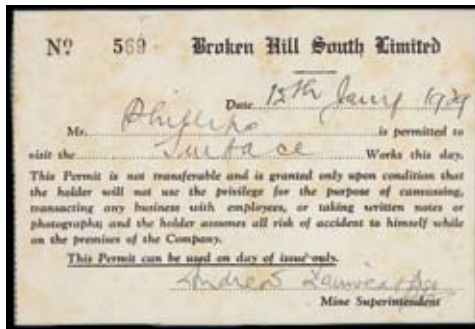 Nº 569 Broken Hill South Limited
Date 12th Jany 1929
Mr. Phillips is permitted to
visit the Surface Works this day.
This Permit is not transferable and is granted only upon condition that
the holder will not use the privilege for the purpose of canvassing,
transacting any business with employees, or taking written notes or
photographs; and the holder assumes all risk of accident to himself while
on the premises of the Company.
This Permit can be used on day of issue only.
Andrew
Mine Superintendent